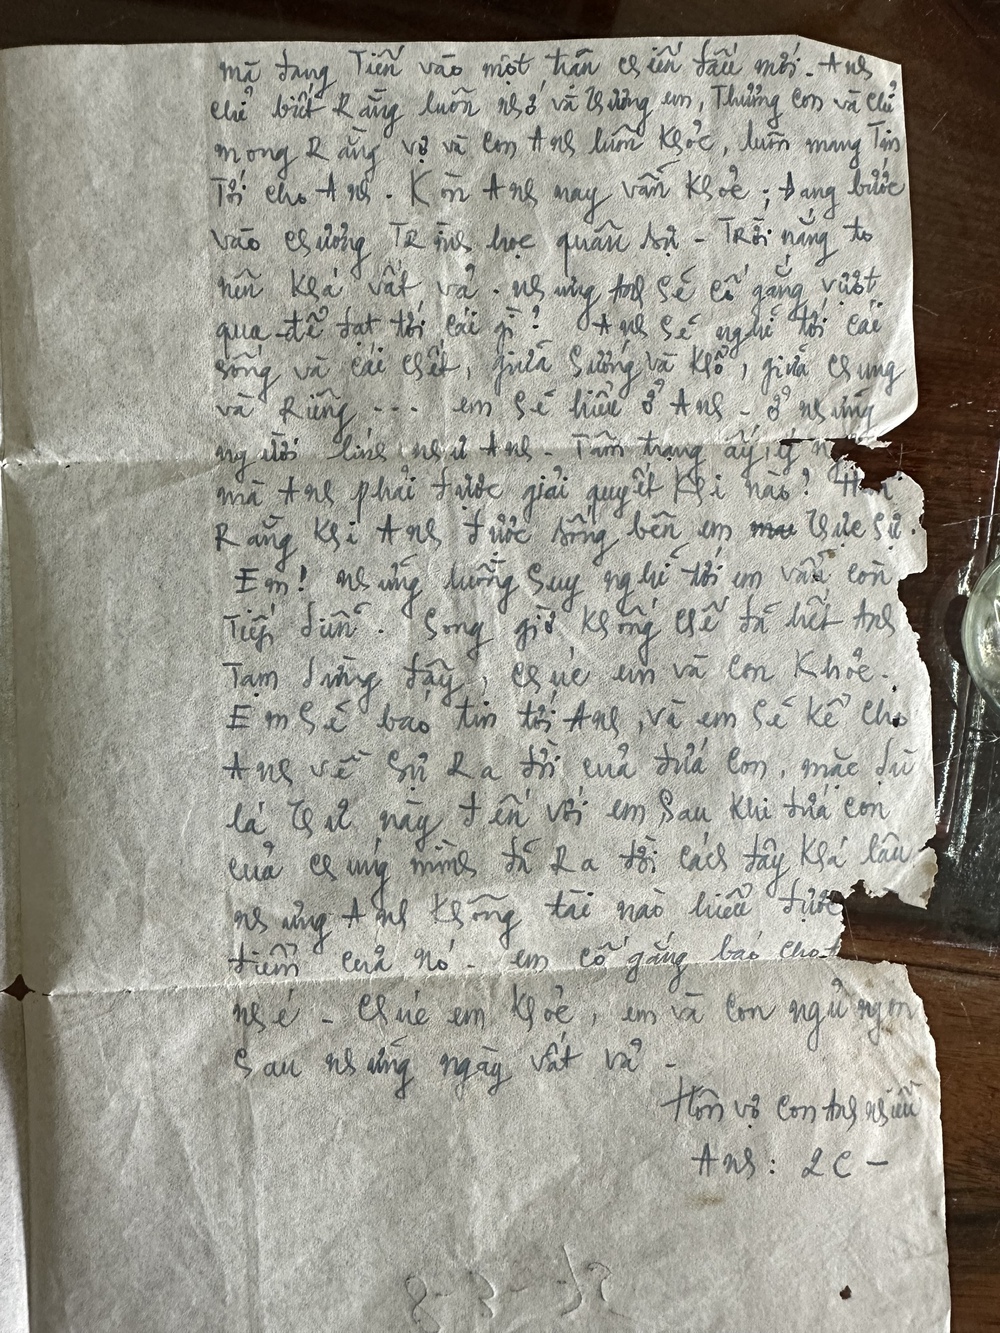 mà đang Tiến vào một trấn chiến đấu mới. Anh
chỉ biết Rằng luôn nhớ và thương em, Thương con và chỉ
mong Rằng vợ và con Anh luôn khỏe, luôn mang Tin
Tới cho Anh. Kòn Anh nay vẫn khỏe; Đang bước
vào chương TRình học quân sự - TRời nắng to
nên khá vất vả. nhưng Anh sẽ cố gắng vượt
qua để đạt tới cái gì? Anh sẽ nghĩ tới cái
sống và cái chết, giữa sướng và khổ, giữa chung
và Riêng --- em sẽ hiểu ở Anh - ở những
người lính như Anh - Tâm trạng ấy, ý
mà Anh phải được giải quyết khi nào?
Rằng khi Anh được sống bên em thực sự.
Em! những luồng suy nghĩ tới em vẫn còn
Tiếp diễn. Song giờ khống chế đã hết Anh
Tạm dừng đây, chúc em và con khỏe.
Em sẽ báo tin tới Anh, và em sẽ kể cho
Anh về sự Ra đời của đứa con, mặc dù
lá thư này đến với em sau khi đứa con
của chúng mình đã Ra đời cách đây khá lâu
nhưng Anh không tài nào hiểu được
điểm của nó - em cố gắng báo cho
nhé - chúc em khỏe, em và con ngủ ngon
sau những ngày vất vả -
Hôn vợ con Anh nhiều
Anh: 2C -